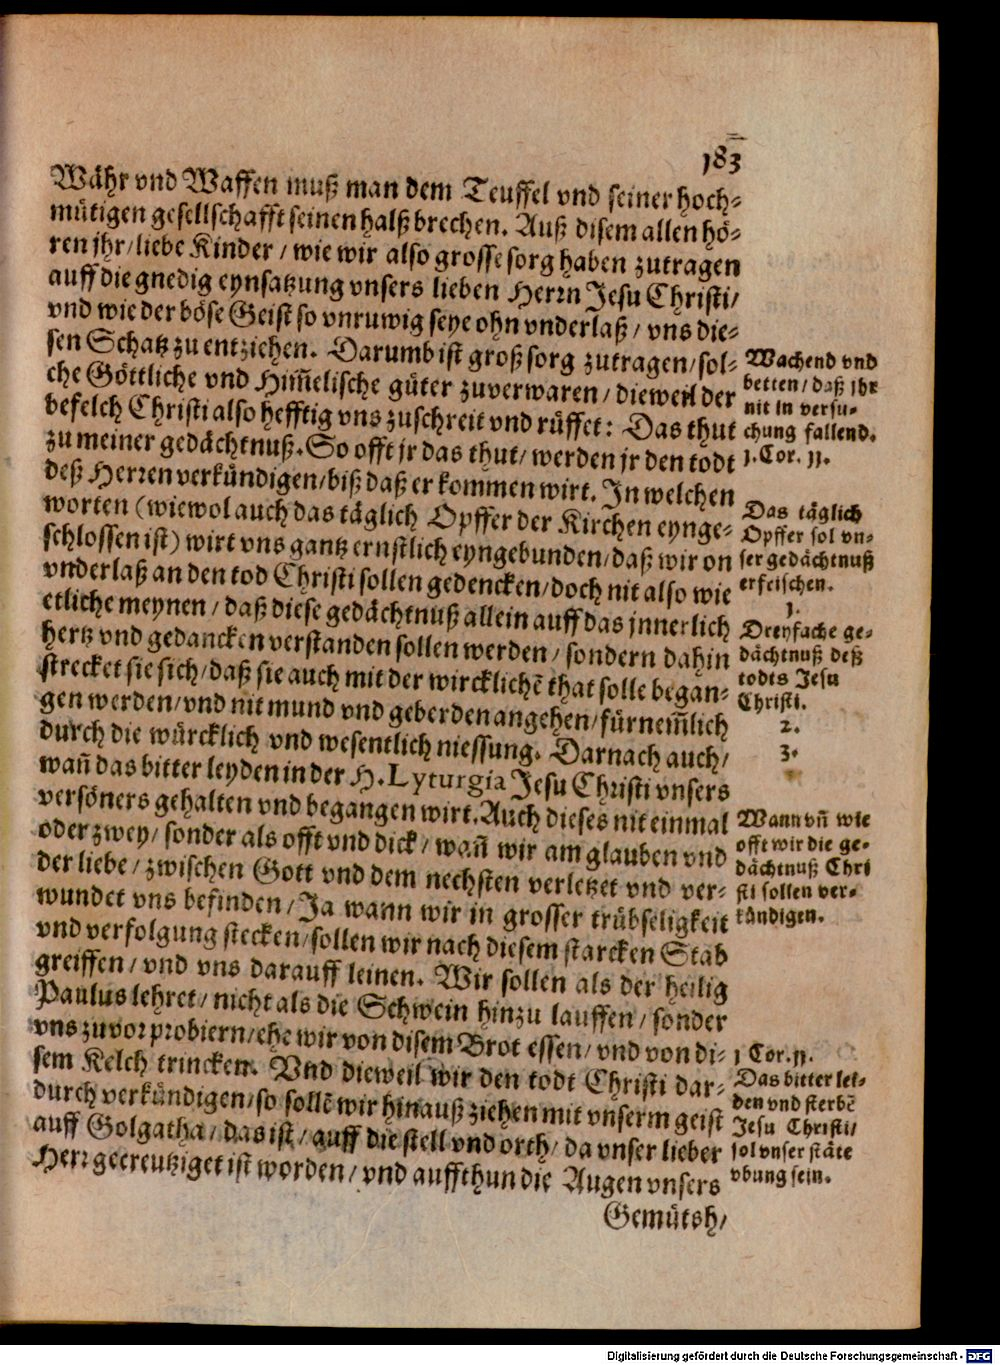 183
Währ vnd Waffen muß man dem Teuffel vnd seiner hoch⸗
mütigen gesellschafft seinen halß brechen. Auß disem allen hö⸗
ren jhr/ liebe Kinder / wie wir also grosse sorg haben zutragen
auff die gnedig eynsatzung vnsers lieben Herrn Jesu Christi/
vnd wie der böse Geist so vnruwig seye ohn vnderlaß / vns die⸗
sen Schatz zu entziehen. Darumb ist groß sorg zutragen/ sol⸗
che Göttliche vnd Him̄elische güter zuverwaren / dieweil der
befelch Christi also hefftig vns zuschreit vnd rüffet: Das thut
zu meiner gedächtnuß. So offt jr das thut/ werden jr den todt
deß Herren verkündigen/ biß daß er kommen wirt. In welchen
worten (wiewol auch das täglich Opffer der Kirchen eynge⸗
schlossen ist) wirt vns gantz ernstlich eyngebunden/ daß wir on
vnderlaß an den tod Christi sollen gedencken/ doch nit also wie
etliche meynen / daß diese gedächtnuß allein auff das jnnerlich
hertz vnd gedancken verstanden sollen werden / sondern dahin
strecket sie sich/ daß sie auch mit der wircklichē that solle began⸗
gen werden/ vnd nit mund vnd geberden angehen/ fürnem̄lich
durch die würcklich vnd wesentlich niessung. Darnach auch/
wañ das bitter leyden in der H. Lyturgia Jesu Christi vnsers
versöners gehalten vnd begangen wirt. Auch dieses nit einmal
oder zwey/ sonder als offt vnd dick / wañ wir am glauben vnd
der liebe / zwischen Gott vnd dem nechsten verletzet vnd ver⸗
wundet vns befinden / Ja wann wir in grosser trübseligkeit
vnd verfolgung stecken/ sollen wir nach diesem starcken Stab
greiffen / vnd vns darauff leinen. Wir sollen als der heilig
Paulus lehret/ nicht als die Schwein hinzu lauffen / sonder
vns zuvor probiern/ ehe wir von disem Brot essen/ vnd von di⸗
sem Kelch trincken. Vnd dieweil wir den todt Christi dar⸗
durch verkündigen/ so sollē wir hinauß ziehen mit vnserm geist
auff Golgatha/ das ist/ auff die stell vnd orth/ da vnser lieber
Herr gecreutziget ist worden/ vnd auffthun die Augen vnsers
Gemütsh/
Wachend vnd
betten/ daß ihr
nit in versu⸗
chung fallend.
1. Cor. 11.
Das täglich
Opffer sol vn⸗
ser gedächtnuß
erfrischen.
1.
Dreyfache ge⸗
dächtnuß deß
todts Jesu
Christi.
2.
3.
Wann vñ wie
offt wir die ge⸗
dächtnuß Chri
sti sollen ver⸗
kündigen.
1 Cor. 11.
Das bitter lei⸗
den vnd sterbē
Jesu Christi/
sol vnser stäte
vbung sein.
Digitalisierung gefördert durch die Deutsche Forschungsgemeinschaft - DFG